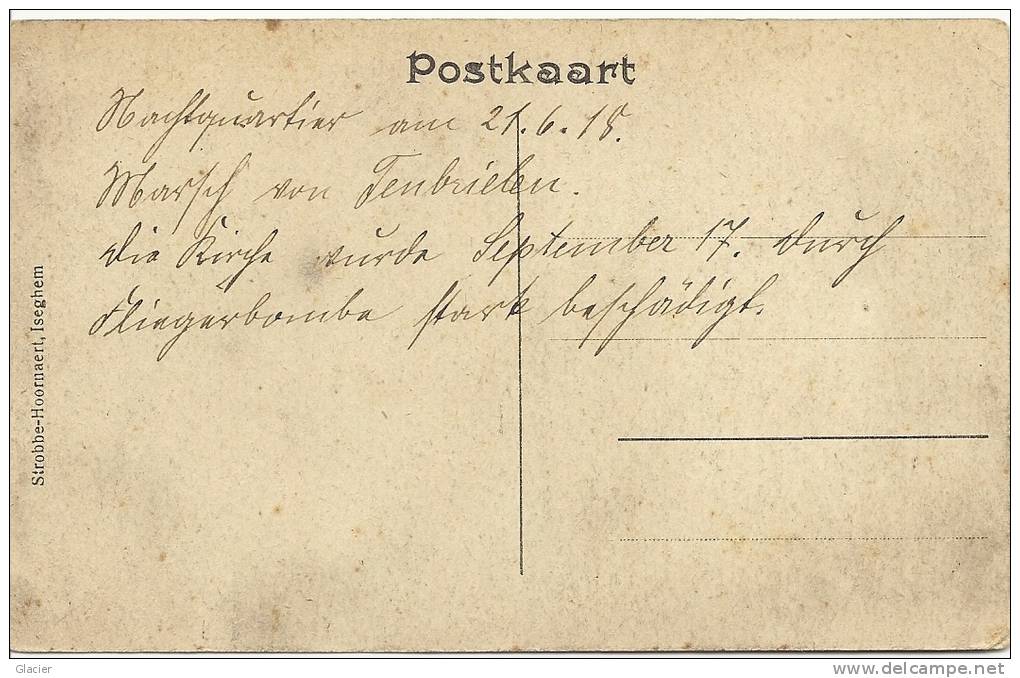 Postkaart
Nachtquartier am 21.6.18.
Marsch von Tenbrielen.
Die Kirche wurde September 17. durch
Fliegerbombe stark beschädigt.
Strobbe-Hoornaert, Iseghem
Glacier
delcampe.net